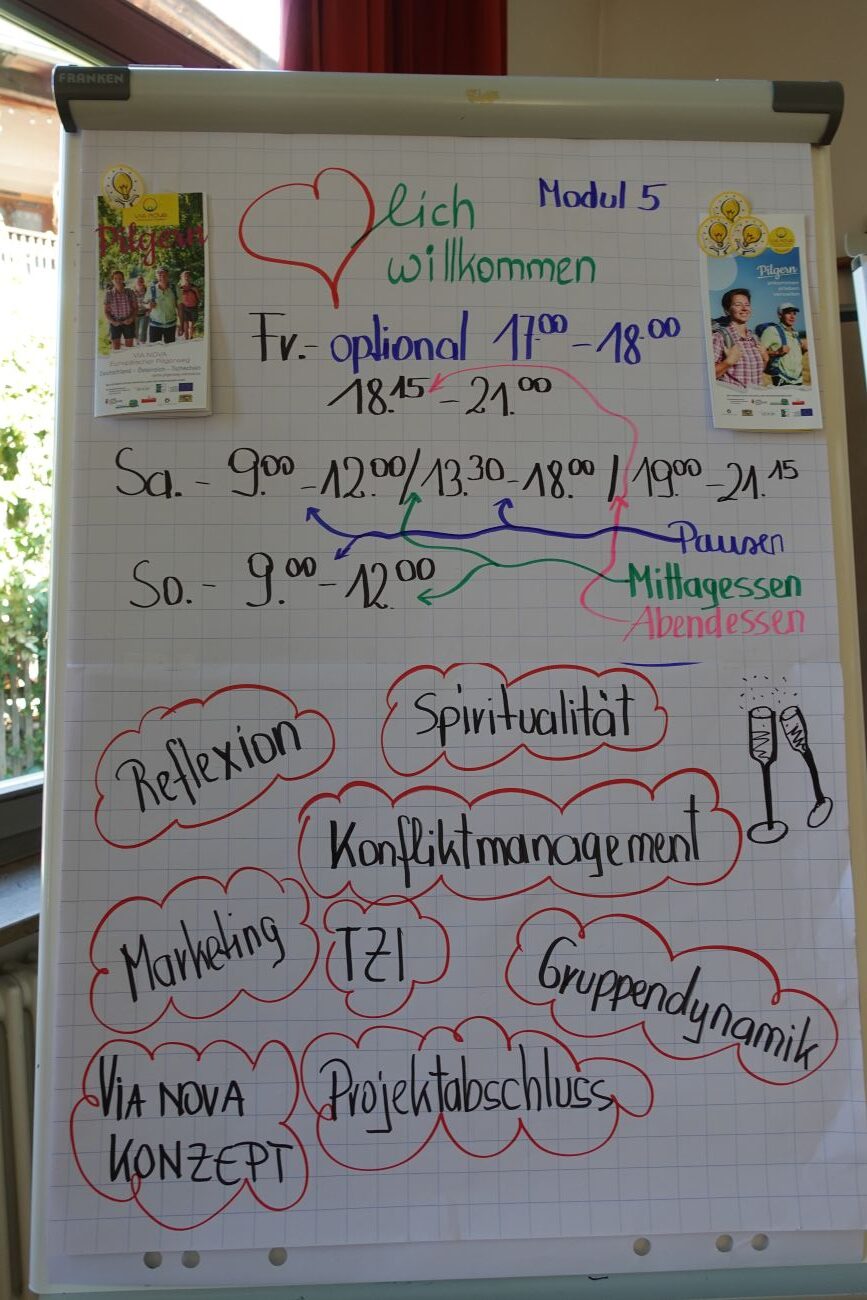 FRANKEN
lich
Modul 5
willkommen
VIA NOVA
Pilgern
VIA NOVA
Europäischer Pilgerweg
Deutschland - Österreich - Tschechien
Pilgern
ankommen
erleben
verweilen
Fr. - optional 17.00 - 18.00
18.15 - 21.00
Sa. - 9.00 - 12.00 / 13.30 - 18.00 / 19.00 - 21.15
Pausen
So. - 9.00 - 12.00
Mittagessen
Abendessen
Spiritualität
Reflexion
Konfliktmanagement
Marketing
TZI
Gruppendynamik
VIA NOVA
KONZEPT
Projektabschluss